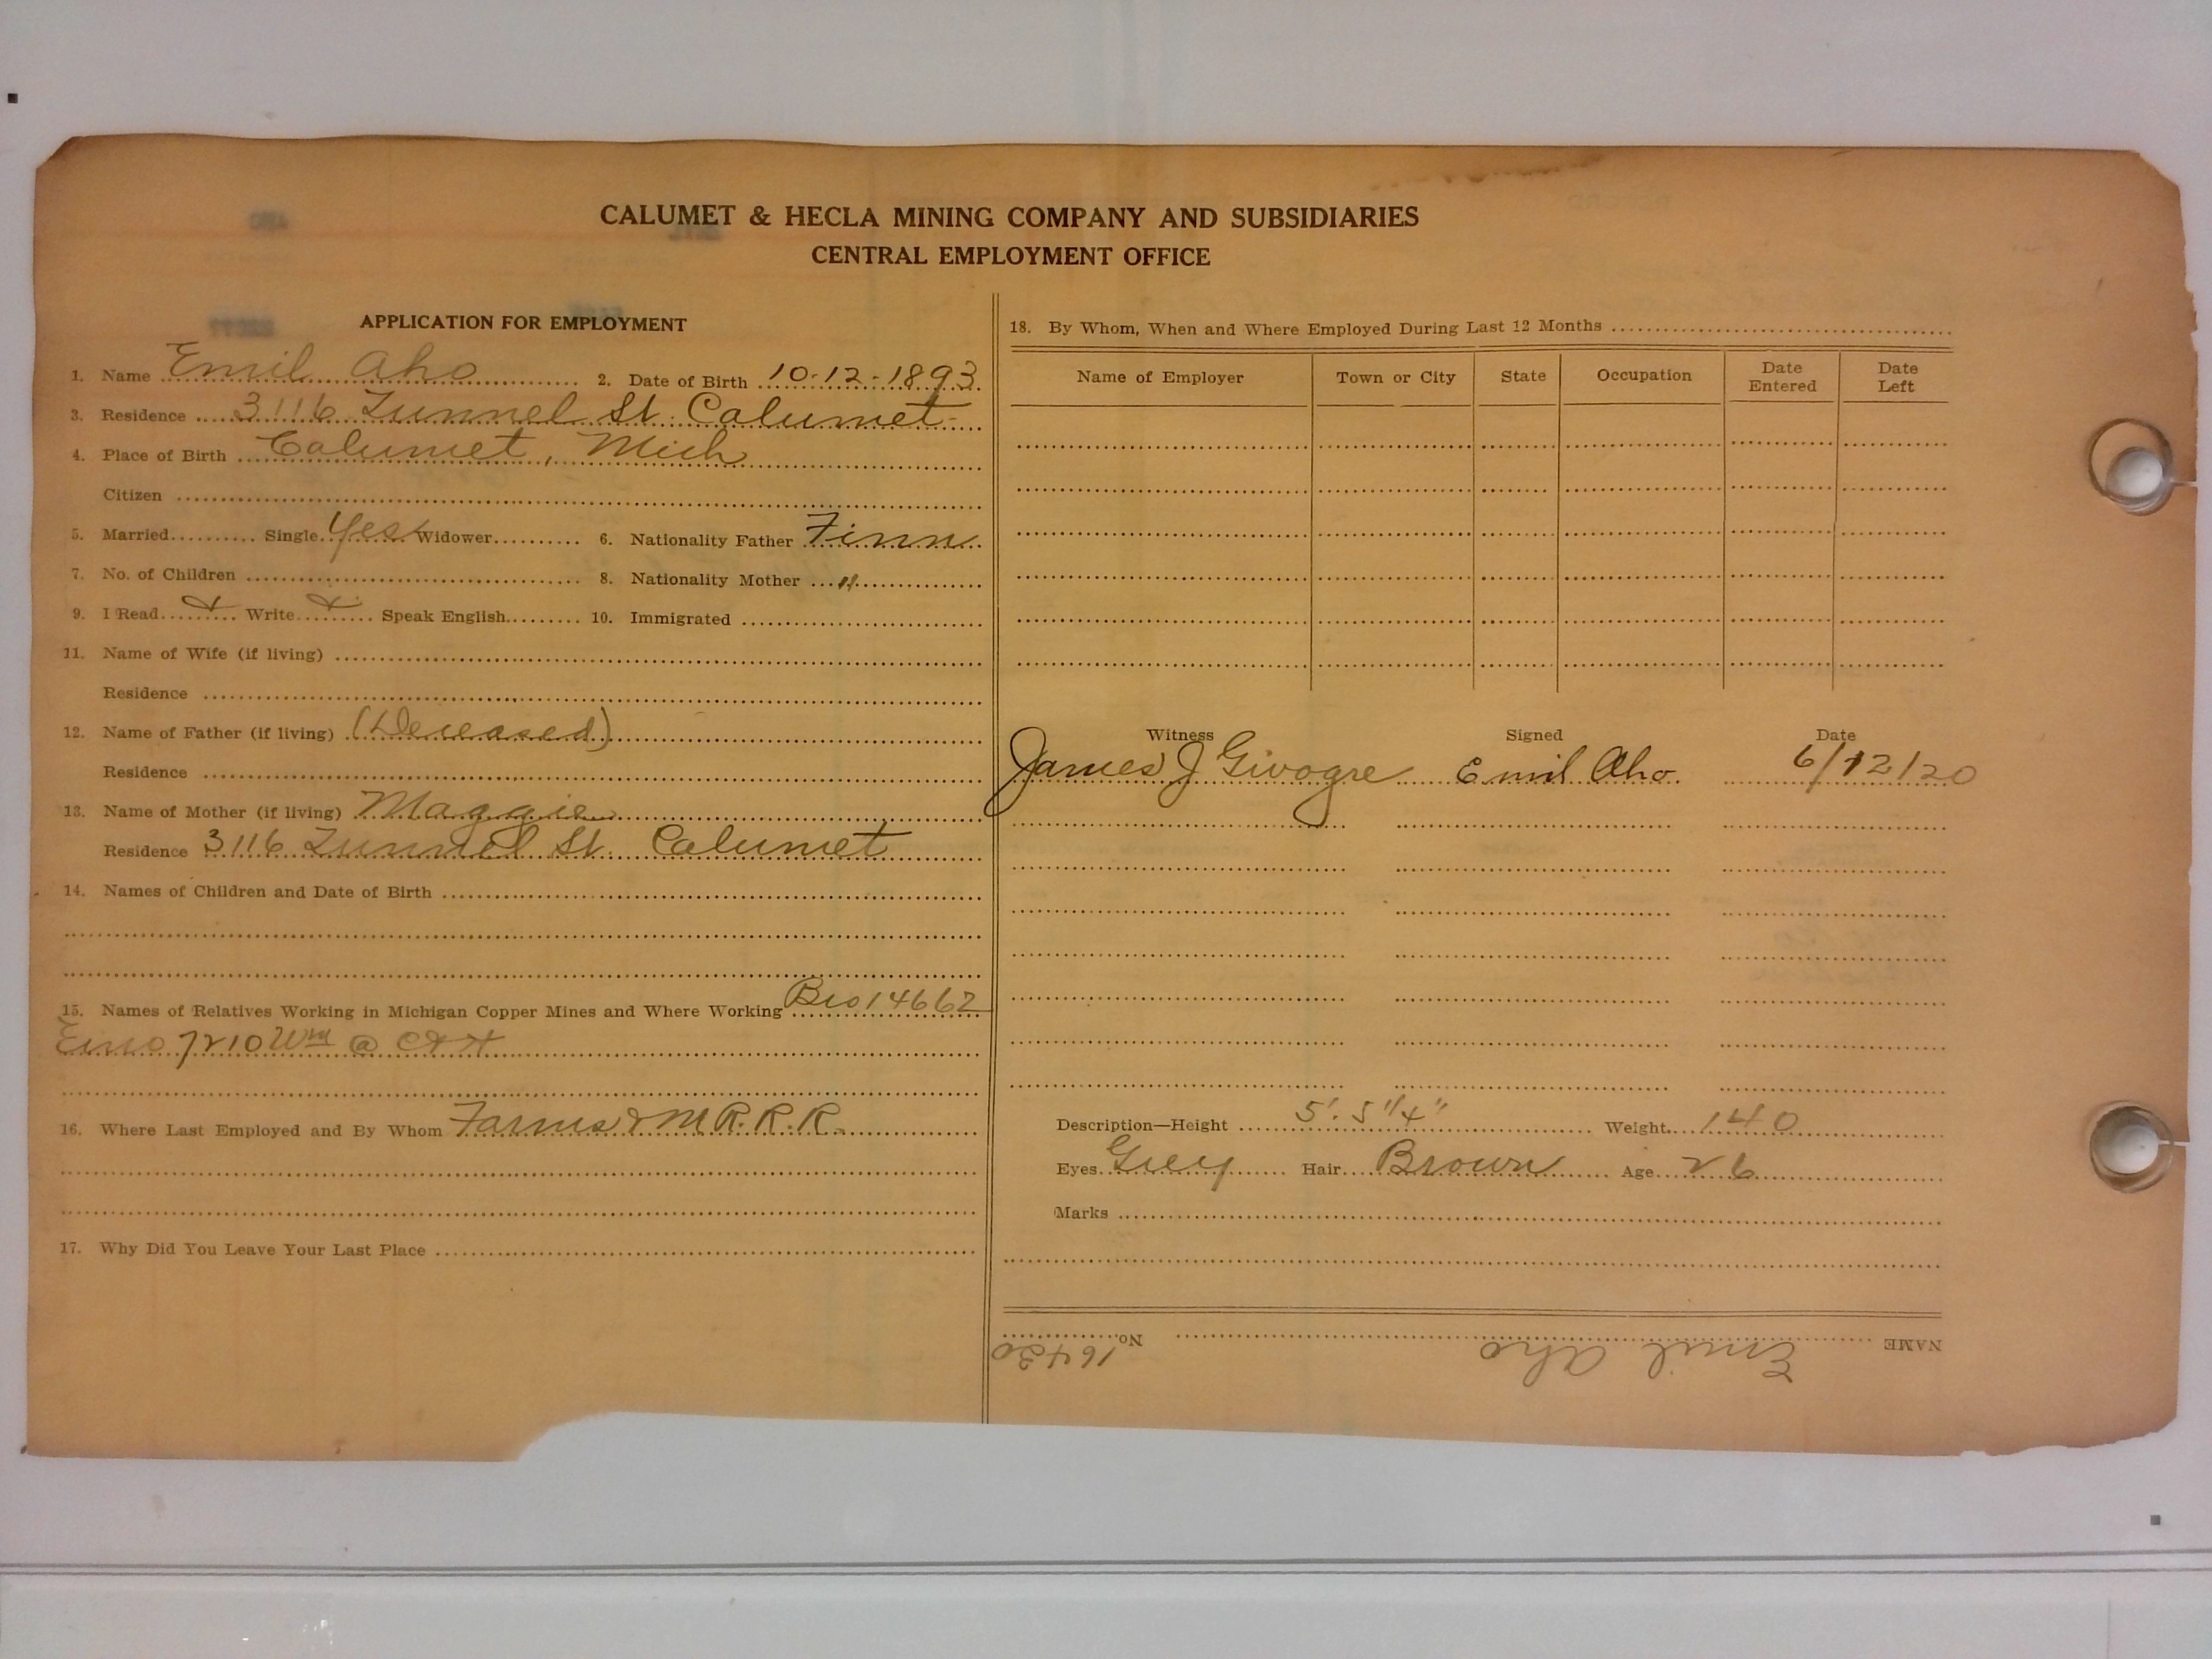 CALUMET & HECLA MINING COMPANY AND SUBSIDIARIES
CENTRAL EMPLOYMENT OFFICE
APPLICATION FOR EMPLOYMENT
1. Name Emil Aho 2. Date of Birth 10-12-1893
3. Residence 3116 Tunnel St. Calumet
4. Place of Birth Calumet, Mich
Citizen
5. Married Single Yes Widower 6. Nationality Father Finn
7. No. of Children 8. Nationality Mother "
9. I Read Write Speak English 10. Immigrated
11. Name of Wife (if living)
Residence
12. Name of Father (if living) (Deceased)
Residence
13. Name of Mother (if living) Maggie
Residence 3116 Tunnel St. Calumet
14. Names of Children and Date of Birth
15. Names of Relatives Working in Michigan Copper Mines and Where Working Bro 14662
Eino 7210 @ C & H
16. Where Last Employed and By Whom M R.R.R.
17. Why Did You Leave Your Last Place
18. By Whom, When and Where Employed During Last 12 Months
Name of Employer Town or City State Occupation Date Entered Date Left
Witness Signed Date
James J Givogre Emil Aho 6/12/20
Description—Height 5'. 5 1/4" Weight 140
Eyes Grey Hair Brown Age 26
Marks
NAME Emil Aho No. 16430